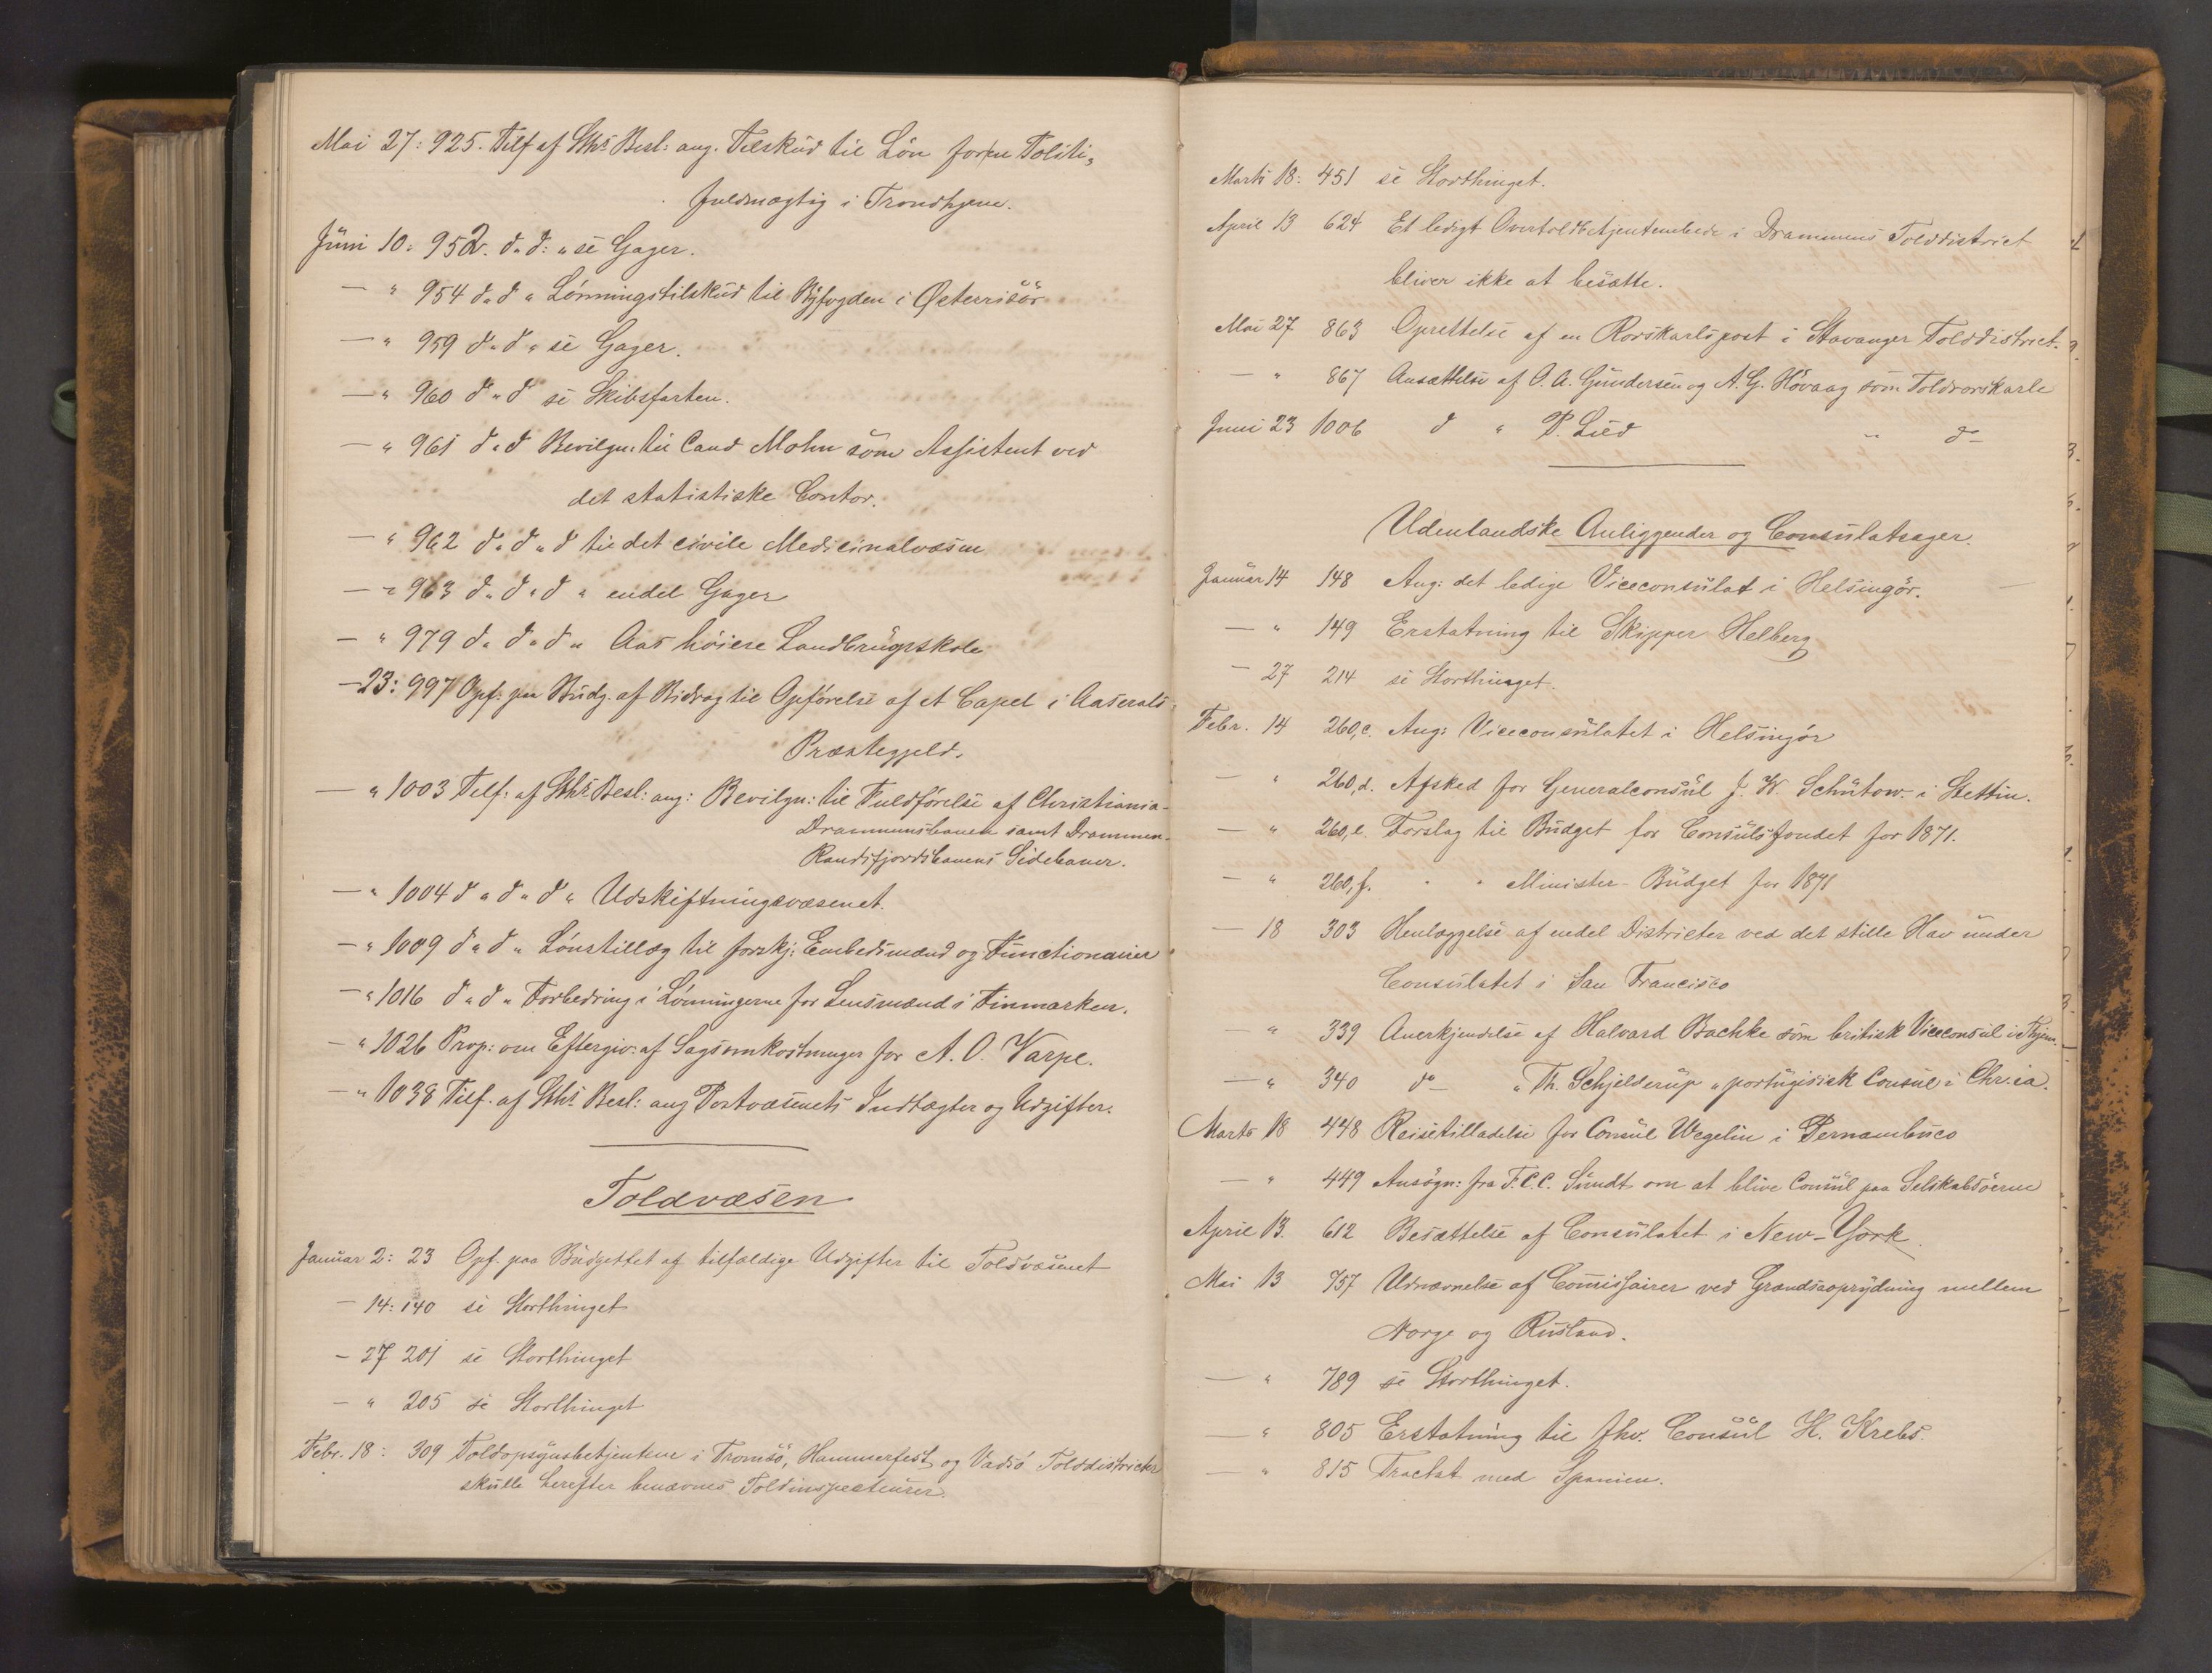 Mai 27: 925. Tilf af Sths Besl: ang. Tilskud til Løn for en Politi-
fuldmægtig i Trondhjem.
Juni 10: 952. d. d: " se Gager.
— " 954 d. d " Lønningstilskud til Byfogden i Østerrisör
— " 959 d. d " se Gager.
— " 960 d " d se Skibsfarten.
— " 961 d. d Bevilgn: til Cand Mohn som Assistent ved
det statistiske Contor.
— " 962 d. d " d til det civile Medicinalvæsen
— " 963 d. d " d " endel Gager
— " 979 d. d. d " Aas høiere Landbrugsskole
— 23: 997 Opf: paa Budg. af Bidrag til Opførelse af et Capel i Aaserals
Præstegjeld.
— " 1003 Tilf: af Sths Besl: ang: Bevilgn: til Fuldførelse af Christiania-
Drammensbanen samt Drammen-
Randsfjordsbanens Sidebaner.
— " 1004 d " d " d " Udskiftningsvæsenet.
— " 1009 d " d " Lønstillæg til forskj: Embedsmænd og Functionairer
— " 1016 d " d " Forbedring i Lønningerne for Lensmænd i Finmarken.
— " 1026 Prop: om Eftergiv: af Sagsomkostninger for A. O. Varpe.
— " 1038 Tilf. af Sths Besl: ang Postvæsenets Indtægter og Udgifter.
Toldvæsen
Januar 2: 23 Opf. paa Budgettet af tilfældige Udgifter til Toldvæsenet
— 14: 140 se Storthinget
— 27 201 se Storthinget
— " 205 se Storthinget
Febr. 18: 309 Toldopsynsbetjentene i Tromsö, Hammerfest og Vadsö Tolddistricter
skulle herefter benævnes Toldinspecteurer.
Marts 18: 451 se Storthinget.
April 13 624 Et ledigt Overtoldbetjentembede i Drammens Tolddistrict
bliver ikke at besætte.
Mai 27 863 Oprettelse af en Rorskarlspost i Stavanger Tolddistrict.
— " 867 Ansættelse af O. A. Gundersen og A. G. Hövaag som Toldrorskarle
Juni 23 1006 d " P. Lied " do
Udenlandske Anliggender og Consulatsager.
Januar 14 148 Ang: det ledige Viceconsulat i Helsingör.
— " 149 Erstatning til Skipper Helberg
— 27 214 se Storthinget.
Febr. 14 260,c. Ang: Viceconsulatet i Helsingör
— " 260,d. Afsked for Generalconsul J. W. Schütow. i Stettin.
— " 260,e. Forslag til Budget for Consulsfondet for 1871.
— " 260,f. " " Minister-Budget for 1871
— 18 303 Henlæggelse af endel Districter ved det stille Hav under
Consulatet i San Francisco
— " 339 Anerkjendelse af Halvard Bachke som britisk Viceconsul i Thjem.
— " 340 do " Th. Schjelderup " portugisisk Consul i Chr.ia.
Marts 18 448 Reisetilladelse for Consul Wegelin i Pernambuco
— " 449 Ansøgn: fra F. C. C. Sundt om at blive Consul paa Selskabsöerne
April 13. 612 Besættelse af Consulatet i New-York
Mai 13 757 Udnævnelse af Comissairer ved Grændseoprydning mellem
Norge og Rusland.
— " 789 se Storthinget.
— " 805 Erstatning til fhv. Consul H. Krebs.
— " 815 Tractat med Spanien.